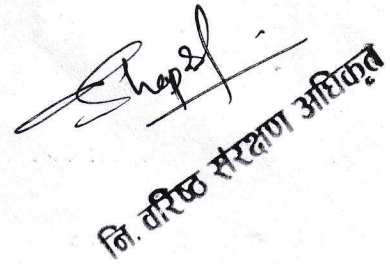 नि. वरिष्ठ संरक्षण अधिकृत